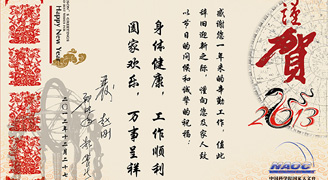 謹
賀
2013
NAOC
中国科学院国家天文台
感谢您一年来的辛勤工作，值此
辞旧迎新之际，谨向您及家人致
以节日的问候和诚挚的祝福：
身体健康，工作顺利
阖家欢乐，万事呈祥
二〇一二年十二月二十七
Happy New Year